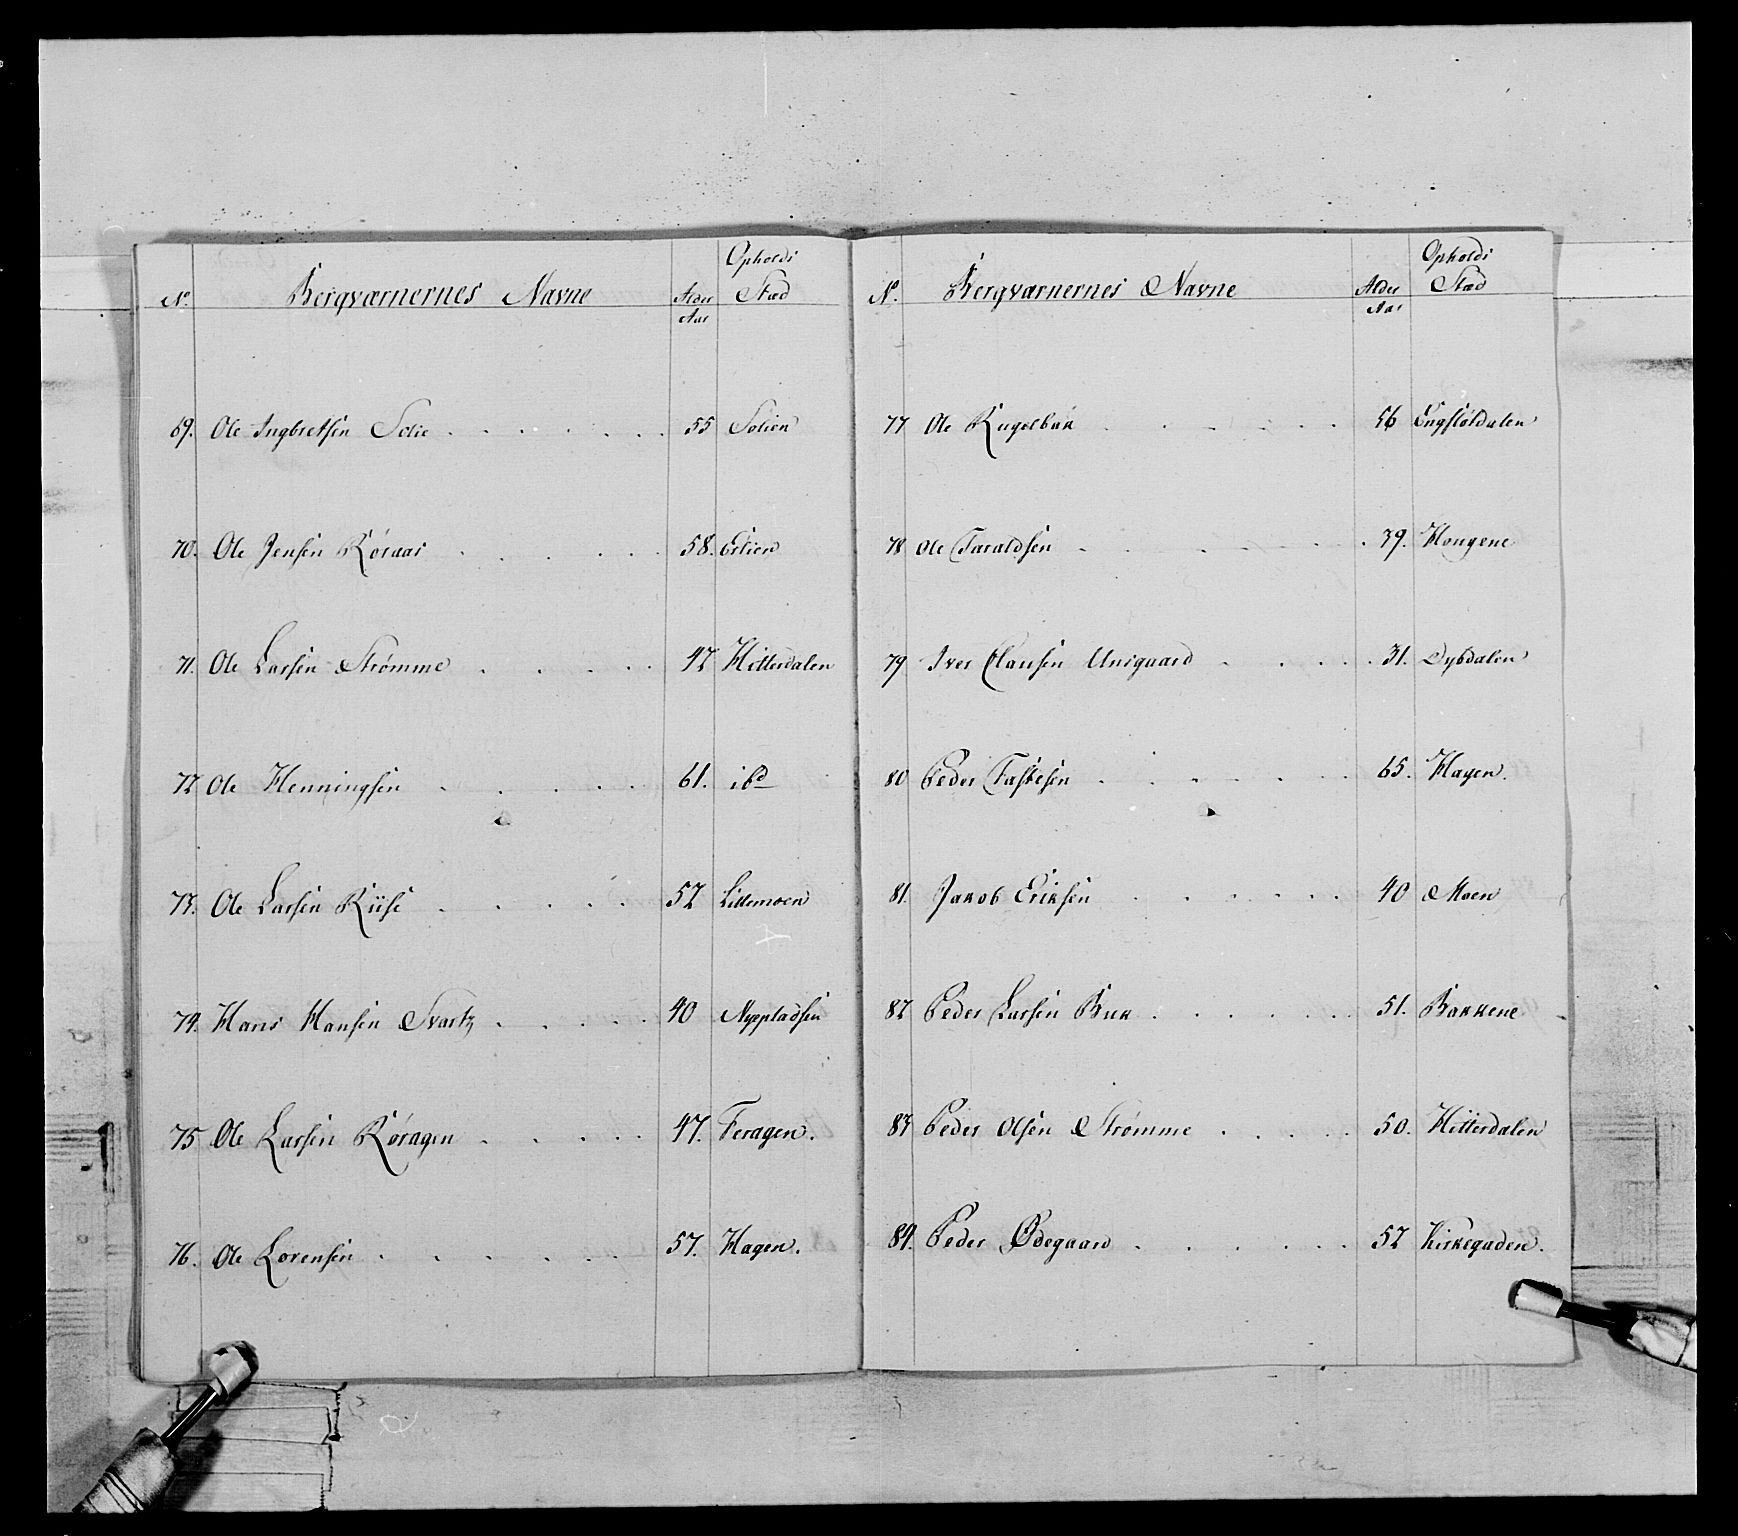 No. Bergværnernes Navne Alder Aar Opholds Stæd
69. Ole Ingbretsen Solie 55 Solien
70. Ole Jensen Røraas 58. Erlien
71. Ole Larsen Strømme 42 Hitterdalen
72 Ole Henningsen 61. ibd
73. Ole Larsen Riise 52 Littemoen
74. Hans Hansen Svartz 40 Nyppladsen
75 Ole Larsen Røragen 47. Feragen.
76. Ole Lorensen 57. Hagen.
No. Bergværnernes Navne Alder Aar Opholds Stæd
77 Ole Kugelbak 56
78 Ole Taraldsen 39. Hongene
79 Iver Clausen Unsgaard 31. Dybdalen
80 Peder Fastesen 65. Hagen.
81. Jakob Eriksen 40 Moen
82 Peder Larsen Buk 51. Bakkene
83 Peder Olsen Strømme 50. Hitterdalen
84. Peder Ødegaard 52 Kirkegaden.